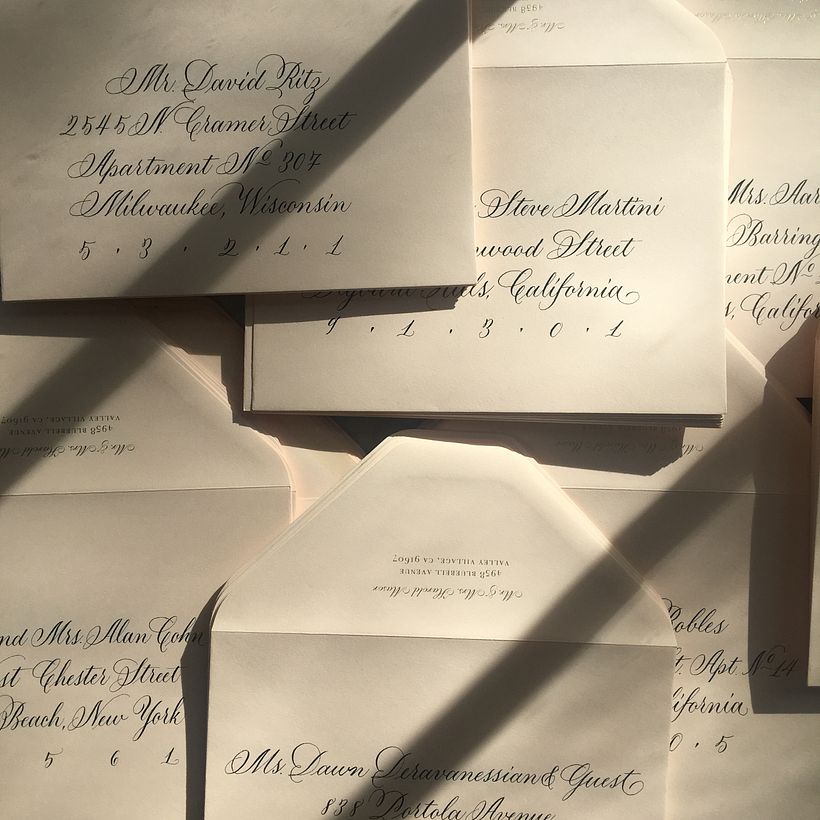 Mr. David Ritz
2545 N. Cramer Street
Apartment No 307
Milwaukee, Wisconsin
5 . 3 . 2 . 1 . 1
Steve Martini
wood Street
Hills, California
9 . 1 . 3 . 0 . 1
Mrs. Aar
Barring
ment No
s, Califor
Mr. & Mrs. Harold
4958 BLUEBELL AVENUE
VALLEY VILLAGE, CA 91607
nd Mrs. Alan Cohn
st Chester Street
Beach, New York
5 6 1
Mr. & Mrs. Harold Maser
4958 BLUEBELL AVENUE
VALLEY VILLAGE, CA 91607
Ms. Dawn Deravanessian & Guest
838 Portola Avenue
Robles
t. Apt. No 14
ifornia
0 . 5